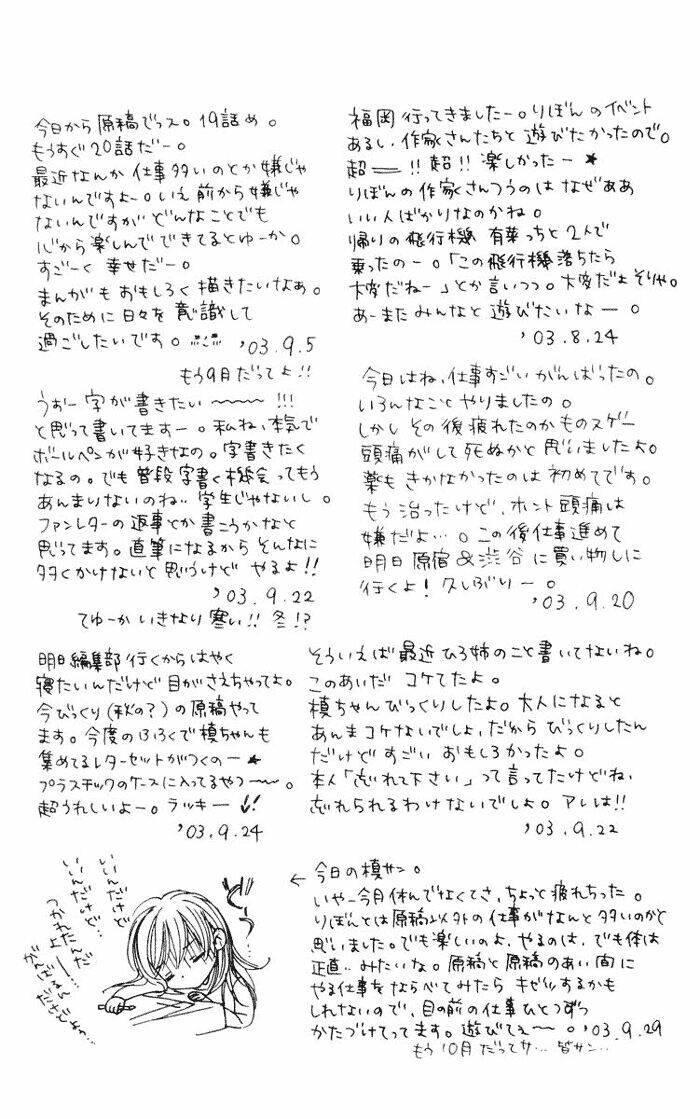 福岡行ってきましたー。りぼんのイベント
あるし、作家さんたちと遊びたかったので。
超ー!!超!!楽しかったー★
りぼんの作家さんつうのはなぜああ
いい人ばかりなのかね。
帰りの飛行機 有葉っちと2人で
乗ったのー。「この飛行機落ちたら
大変だねー」とか言いつつ。大変だよそりゃ。
あーまたみんなと遊びたいなー。
'03.8.24
今日から原稿でっス。19話め。
もうすぐ20話だー。
最近なんか仕事多いのとか嫌じゃ
ないんですよー。いえ前から嫌じゃ
ないんですがどんなことでも
心から楽しんでできてるとゆーか。
すごーく幸せだー。
まんがもおもしろく描きたいなあ。
そのために日々を意識して
過ごしたいです。
'03.9.5
もう9月だってよ!!
今日はね、仕事すごいがんばったの。
いろんなことやりましたの。
しかしその後疲れたのかものスゲー
頭痛がして死ぬかと思いましたよ。
薬もきかなかったのは初めてです。
もう治ったけど、ホント頭痛は
嫌だよ…。この後仕事進めて
明日原宿&渋谷に買い物しに
行くよ!久しぶりー。
'03.9.20
うおー字が書きたい〜〜〜!!!
と思って書いてますー。私ね、本気で
ボールペンが好きなの。字書きたく
なるの。でも普段字書く機会ってもう
あんまりないのね‥学生じゃないし。
ファンレターの返事とか書こうかなと
思ってます。直筆になるからそんなに
多くかけないと思うけどやるよ!!
'03.9.22
てゆーかいきなり寒い!!冬!?
そういえば最近ひろ姉のこと書いてないね。
このあいだコケてたよ。
槙ちゃんびっくりしたよ。大人になると
あんまコケないでしょ、だからびっくりしたん
だけどすごいおもしろかったよ。
本人「忘れて下さい」って言ってたけどね、
忘れられるわけないでしょ。アレは!!
'03.9.22
明日編集部行くからはやく
寝たいんだけど目がさえちゃってよ。
今びっくり(秋の?)の原稿やって
ます。今度のふろくで槙ちゃんも
集めてるレターセットがつくのー★
プラスチックのケースに入ってるやつ〜〜。
超うれしいよー。ラッキー!!
'03.9.24
←今日の槙サン。
いやー今月休んでなくてさ、ちょっと疲れちった。
りぼんとは原稿以外の仕事がなんと多いのかと
思いました。でも楽しいのよ、やるのは、でも体は
正直‥みたいな。原稿と原稿のあい間に
やる仕事をならべてみたらキゼツするかも
しれないので、目の前の仕事ひとつずつ
かたづけてってます。遊びてえ〜。'03.9.29
もう10月だってサ…皆サン…
いいんだけど
いいんだけど…
つかれたんだ
よー…
がんばる